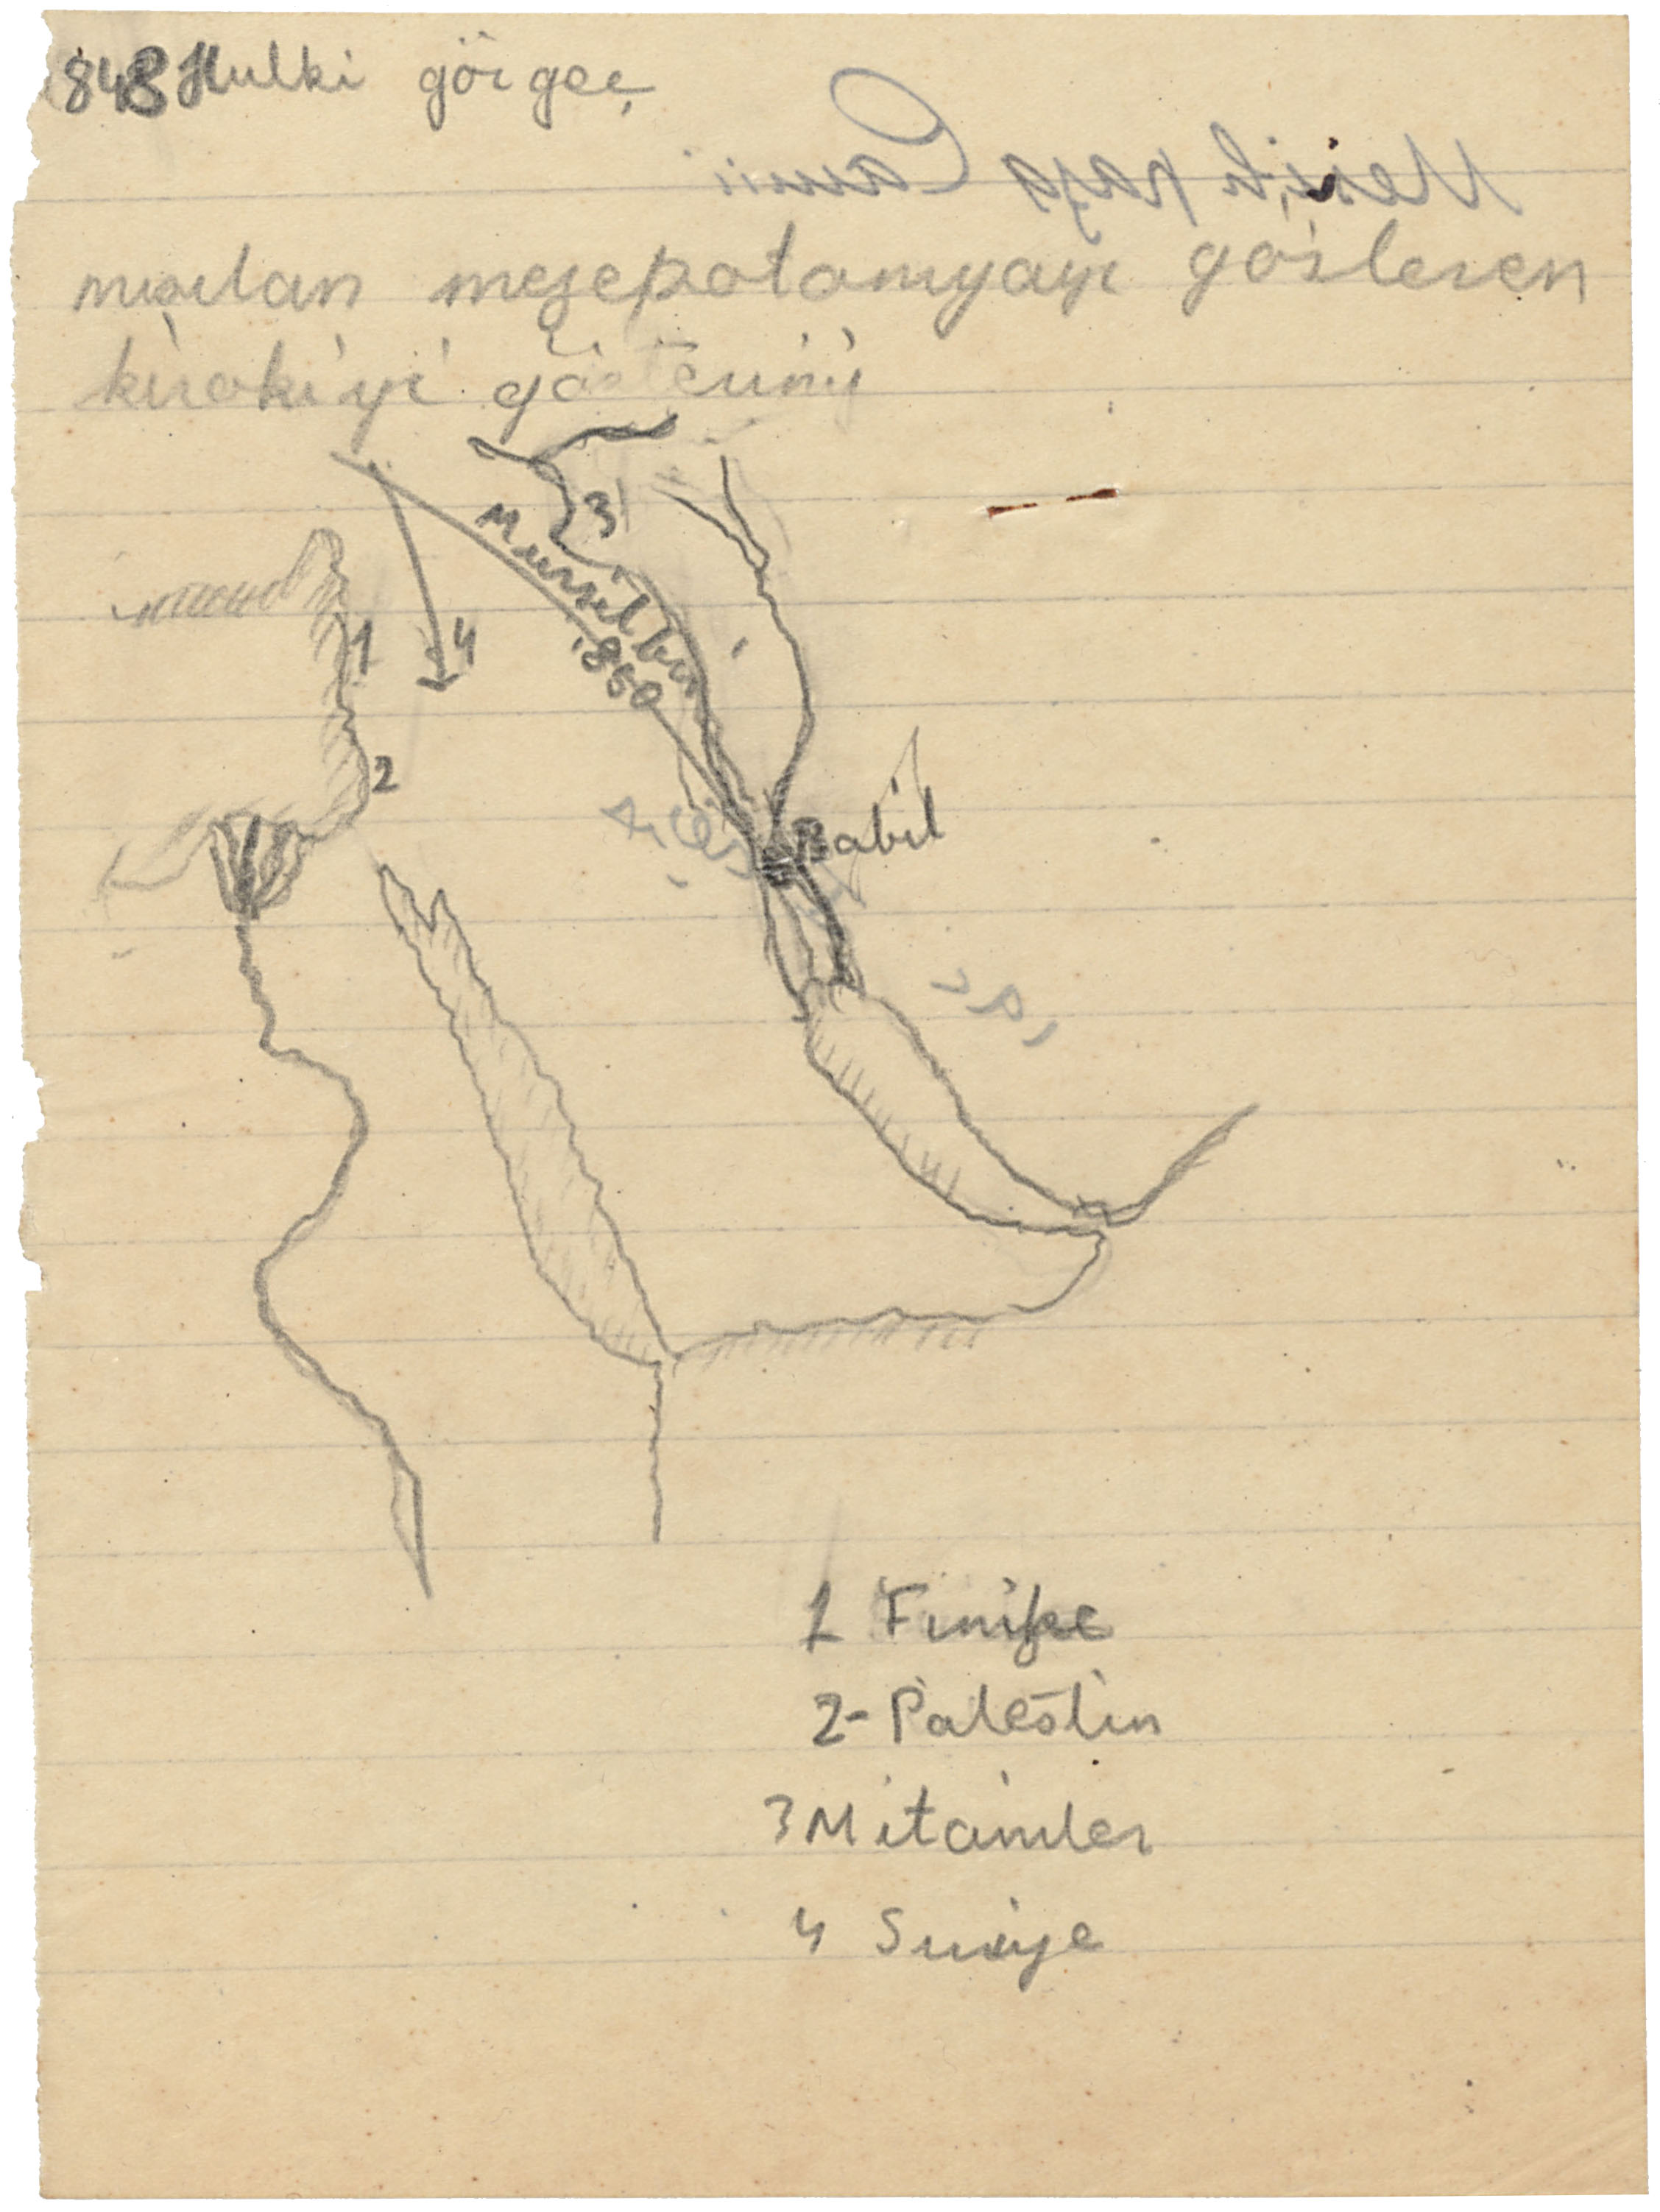 848 Hulki görgeç
Mesih paşa Camii
mısırdan mezepotamyayı gösteren
kırokiyi gösteriniz
3
Mursil kın
1860
1
4
2
Babil
1 Finike
2- Palestin
3 Mitaniler
4 Suriye